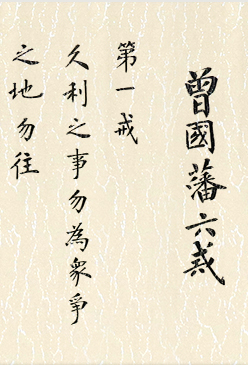 曾國藩六戒
第一戒
久利之事勿為衆爭
之地勿往